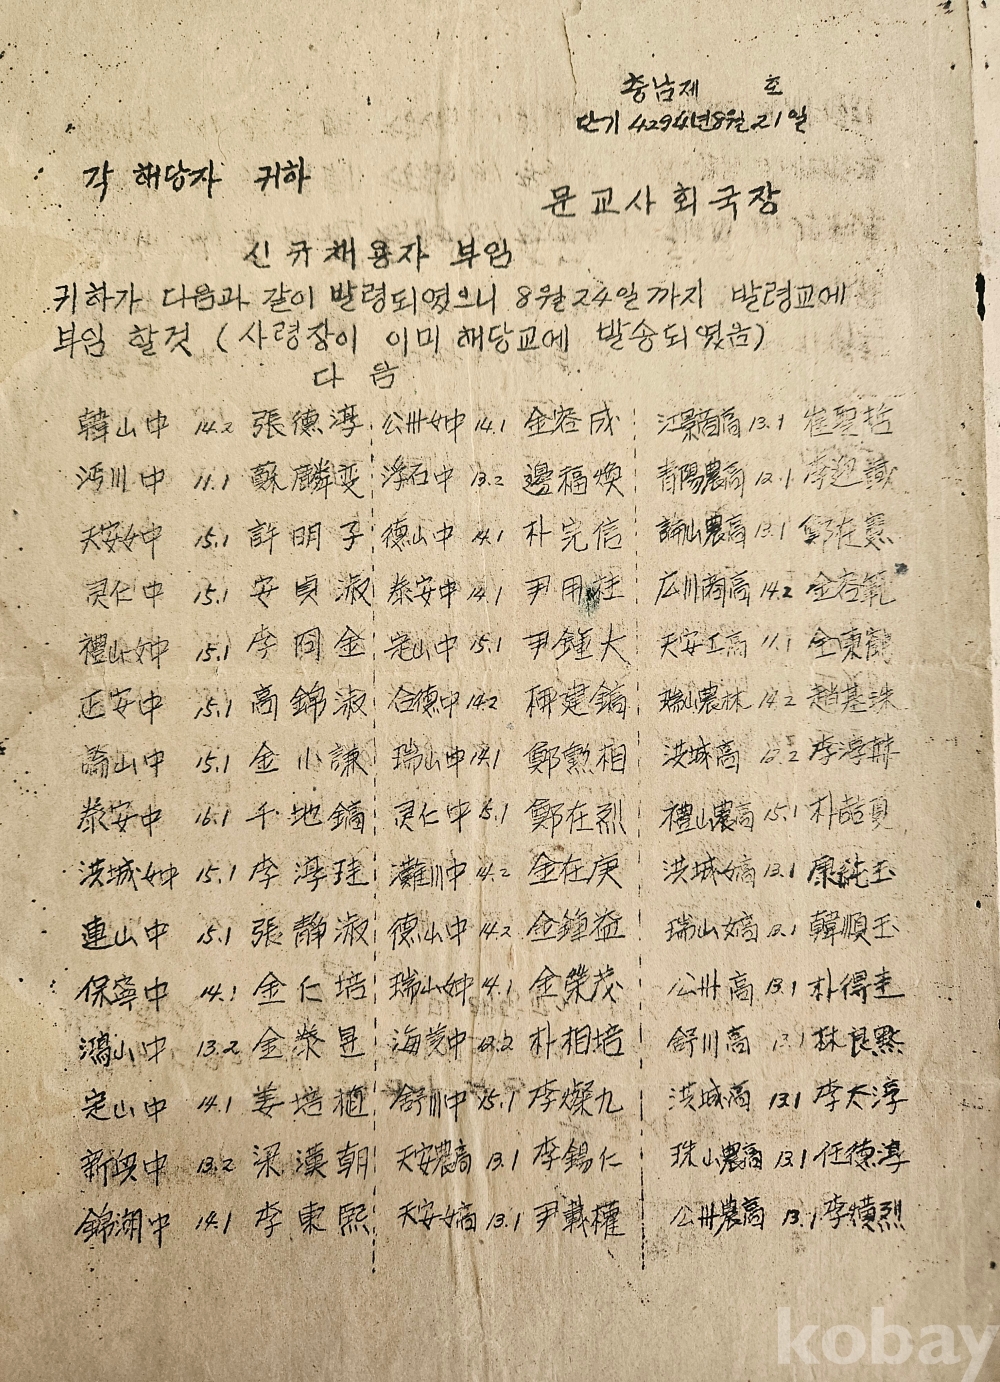 충남제 호
단기 4294년8월21일
각 해당자 귀하
문교사회국장
신규채용자 부임
귀하가 다음과 같이 발령되였으니 8월24일까지 발령교에
부임 할것 (사령장이 이미 해당교에 발송되였음)
다음
韓山中 14.2 張德淳 公州女中 14.1 金容成 江景商高 13.1 崔聖哲
沔川中 11.1 蘇麟変 浮石中 13.2 邊福煥 青陽農高 12.1 李
天安女中 15.1 許明子 德山中 14.1 朴完信 論山農高 13.1 鄭在
灵仁中 15.1 安貞淑 泰安中 14.1 尹用柱 広川商高 14.2 金容範
禮山女中 15.1 李同金 定山中 15.1 尹鍾大 天安工高 11.1 金東
正安中 15.1 高錦淑 合德中 14.2 建鎬 瑞山農林 14.2 趙基珠
論山中 15.1 金小謙 瑞山中 14.1 鄭勲相 洪城高 12.2 李淳
泰安中 16.1 千地鎬 灵仁中 15.1 鄭在烈 禮山農高 15.1 朴喆夏
洪城女中 15.1 李淳珪 灘川中 14.2 金在庚 洪城女高 13.1 康純玉
連山中 15.1 張靜淑 德山中 14.2 金鍾益 瑞山女高 13.1 韓順玉
保寧中 14.1 金仁培 瑞山女中 14.1 金榮茂 公州高 13.1 朴得圭
鴻山中 13.2 金泰昱 海美中 13.2 朴相培 舒川高 13.1 林良黙
定山中 14.1 姜培植 舒川中 15.1 李燦九 洪城高 13.1 李大淳
新興中 13.2 梁漢朝 天安農高 13.1 李錫仁 山農高 13.1 任德淳
錦湖中 14.1 李東熙 天安女高 13.1 尹載權 公州農高 13.1 李烈
kobay